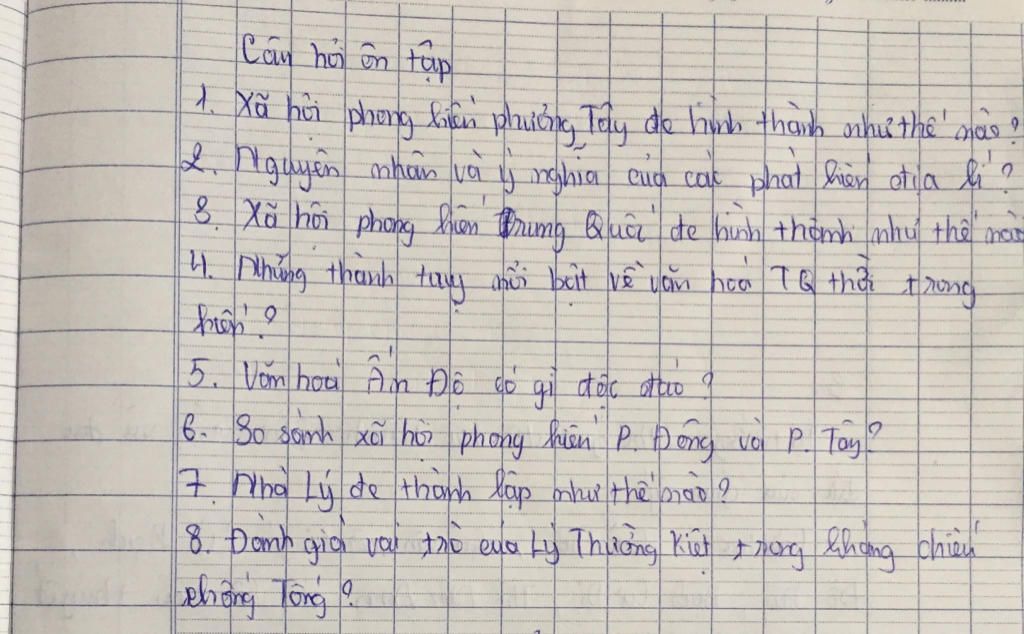 Câu hỏi ôn tập
1. Xã hội phong kiến phương Tây đc hình thành như thế nào?
2. Nguyên nhân và ý nghĩa của các phát kiến địa lí?
3. Xã hội phong kiến Trung Quốc đc hình thành như thế nào
4. Những thành tựu nổi bật về văn hoá TQ thời trong
kiến?
5. Văn hoá Ấn Độ có gì độc đáo?
6. So sánh xã hội phong kiến P. Đông và P. Tây?
7. Nhà Lý đc thành lập như thế nào?
8. Đánh giá vai trò của Lý Thường Kiệt trong kháng chiến
chống Tống?